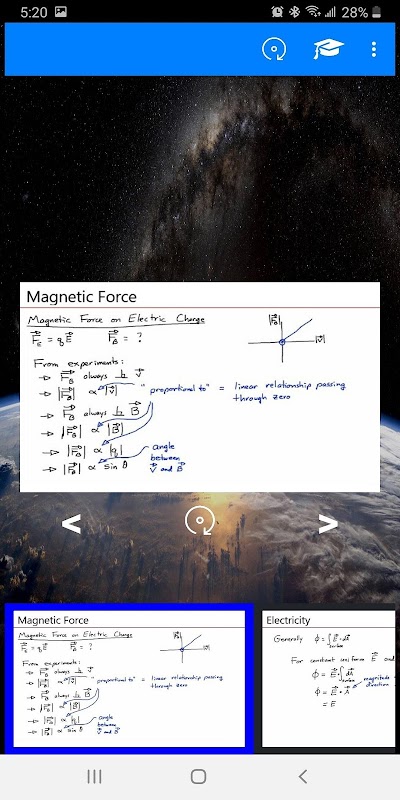 5:20
28%
Magnetic Force
Magnetic Force on Electric Charge
F⃗_E = qE⃗ F⃗_B = ?
|F⃗_B|
|v⃗|
From experiments:
→ F⃗_B always ⊥ v⃗
→ |F⃗_B| ∝ |v⃗| "proportional to" = linear relationship passing
through zero
→ F⃗_B always ⊥ B⃗
→ |F⃗_B| ∝ |B⃗|
→ |F⃗_B| ∝ |q|
→ |F⃗_B| ∝ sin θ
angle
between
v⃗ and B⃗
<
>
Magnetic Force
Magnetic Force on Electric Charge
F⃗_E = qE⃗ F⃗_B = ?
|F⃗_B|
|v⃗|
From experiments:
→ F⃗_B always ⊥ v⃗
→ |F⃗_B| ∝ |v⃗| "proportional to" = linear relationship passing
through zero
→ F⃗_B always ⊥ B⃗
→ |F⃗_B| ∝ |B⃗|
→ |F⃗_B| ∝ |q|
→ |F⃗_B| ∝ sin θ
angle
between
v⃗ and B⃗
Electricity
Generally ϕ = ∫ E⃗ · dA⃗
surface
For constant uniform E⃗ and
ϕ = E⃗ · ∫ dA⃗
surface
ϕ = E⃗ · A⃗
magnitude
direction
= E